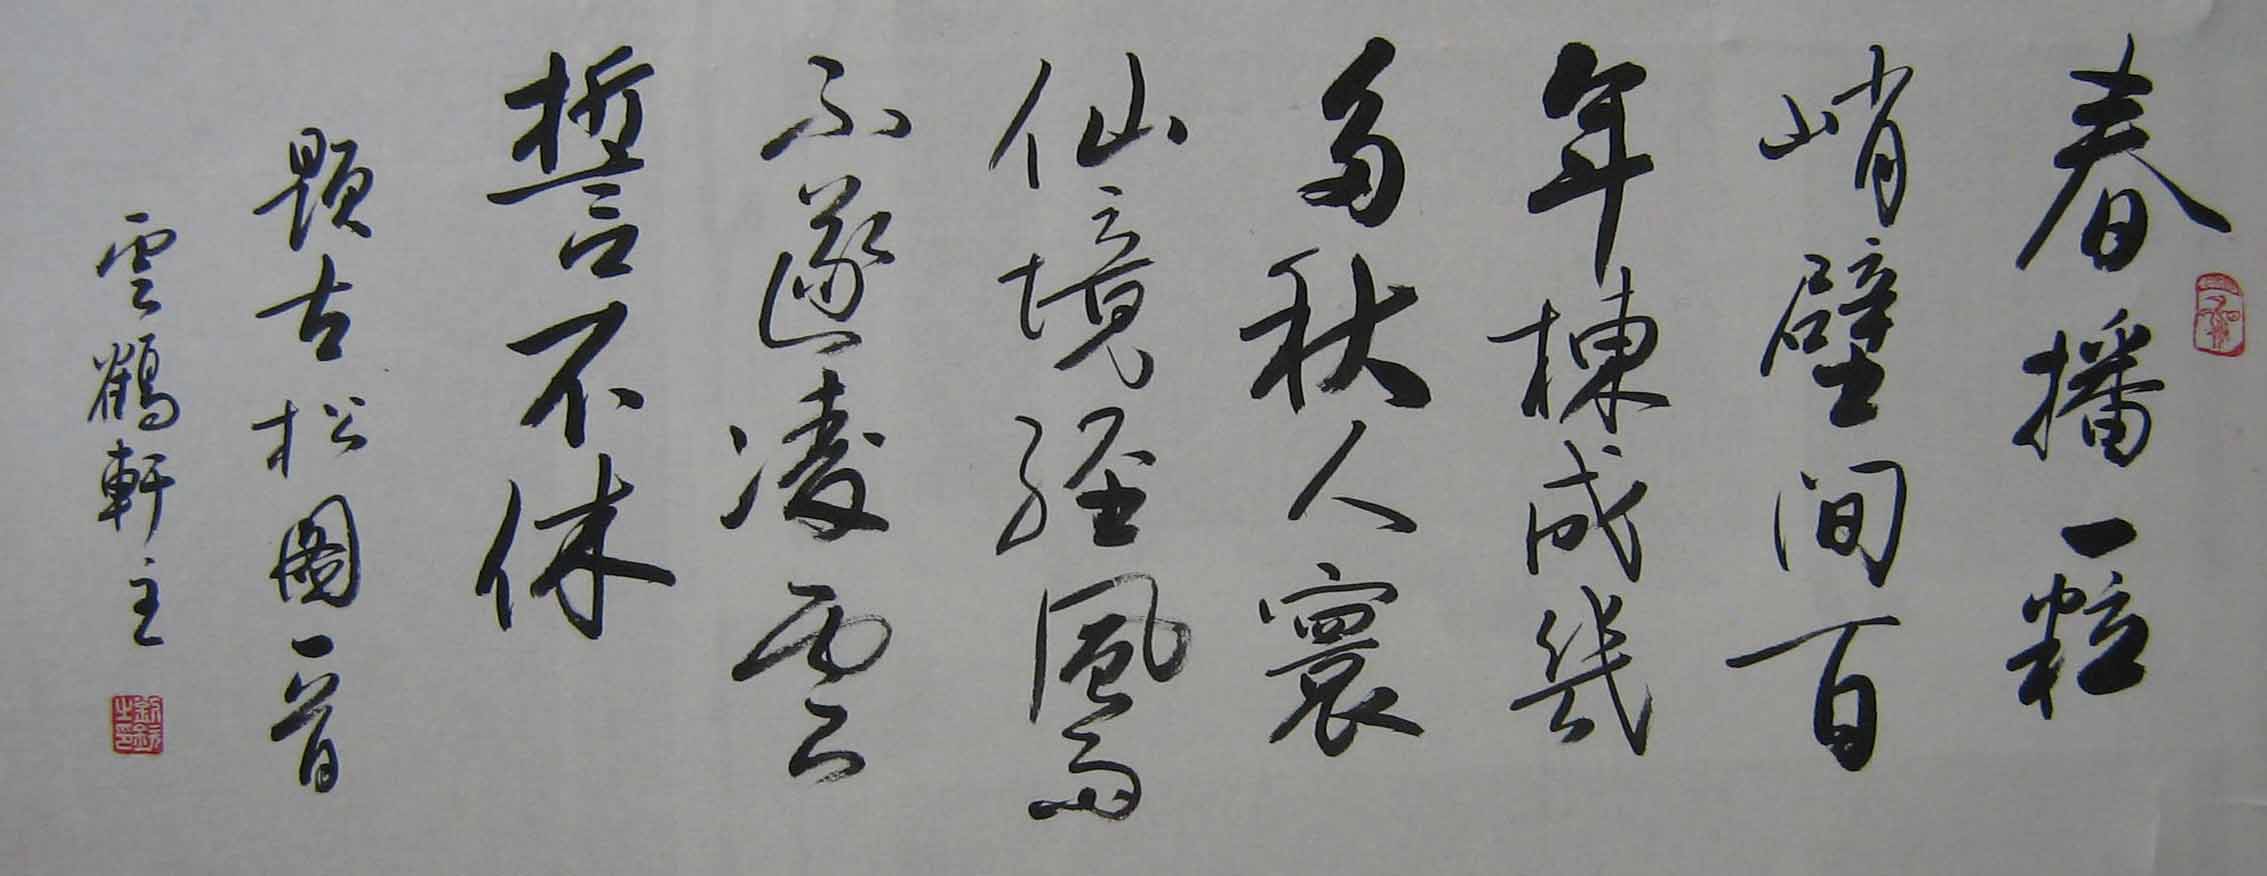 春播一粒
峭壁间百
年棟成幾
多秋人寰
仙境經風雨
不遂凌雲
誓不休
題古松圖一首
雲鶴軒主